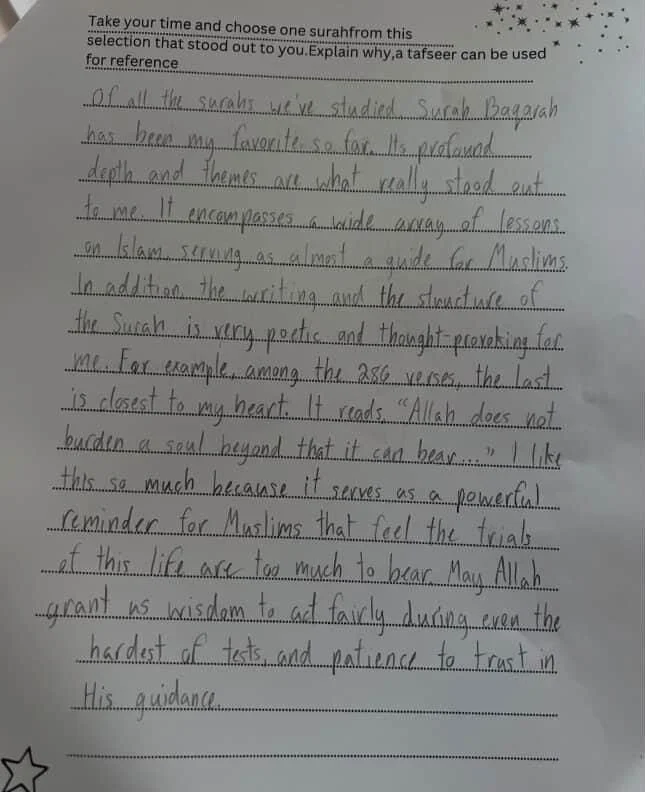 Take your time and choose one surahfrom this
selection that stood out to you.Explain why,a tafseer can be used
for reference
Of all the surahs we've studied, Surah Baqarah
has been my favorite so far. Its profound
depth and themes are what really stood out
to me. It encompasses a wide array of lessons
on Islam, serving as almost a guide for Muslims.
In addition, the writing and the structure of
the Surah is very poetic and thought-provoking for
me. For example, among the 286 verses, the last
is closest to my heart. It reads, "Allah does not
burden a soul beyond that it can bear..." I like
this so much because it serves as a powerful
reminder for Muslims that feel the trials
of this life are too much to bear. May Allah
grant us wisdom to act fairly during even the
hardest of tests, and patience to trust in
His guidance.